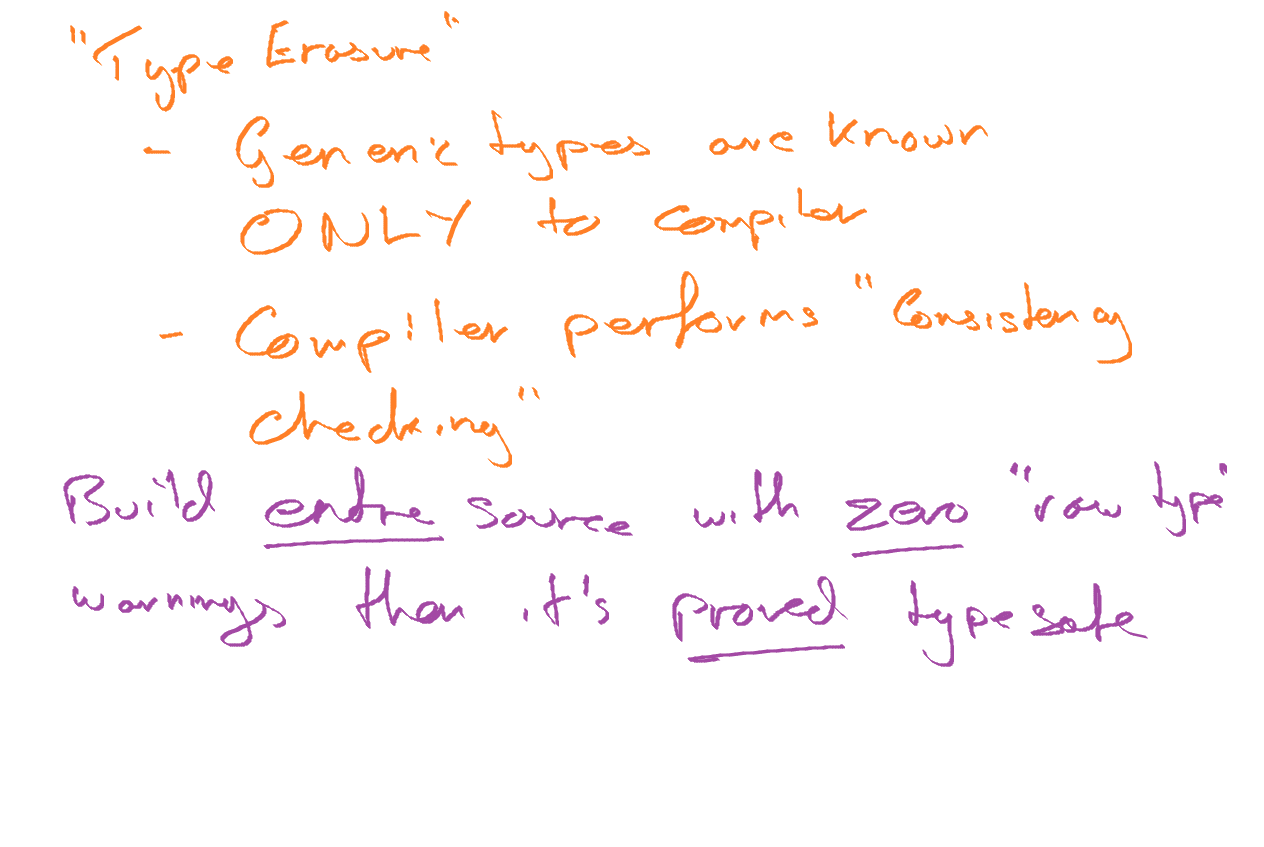 "Type Erasure"
- Generic types are known
ONLY to compiler
- Compiler performs "Consistency
checking"
Build entire source with zero "raw type"
warnings then it's proved typesafe